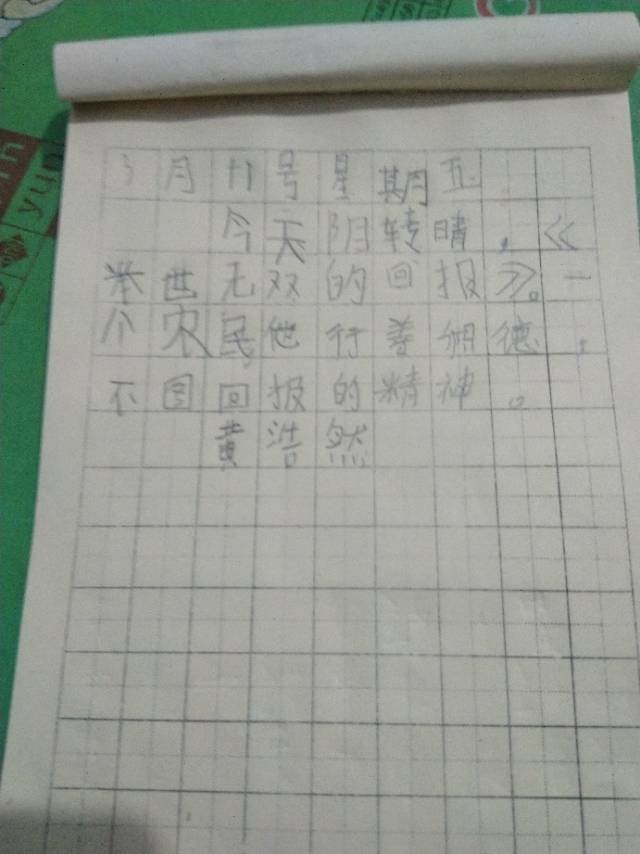 3月11号星期五
今天阴转晴,《
举世无双的回报》。一
个农民他行善积德,
不图回报的精神。
黄浩然
yun